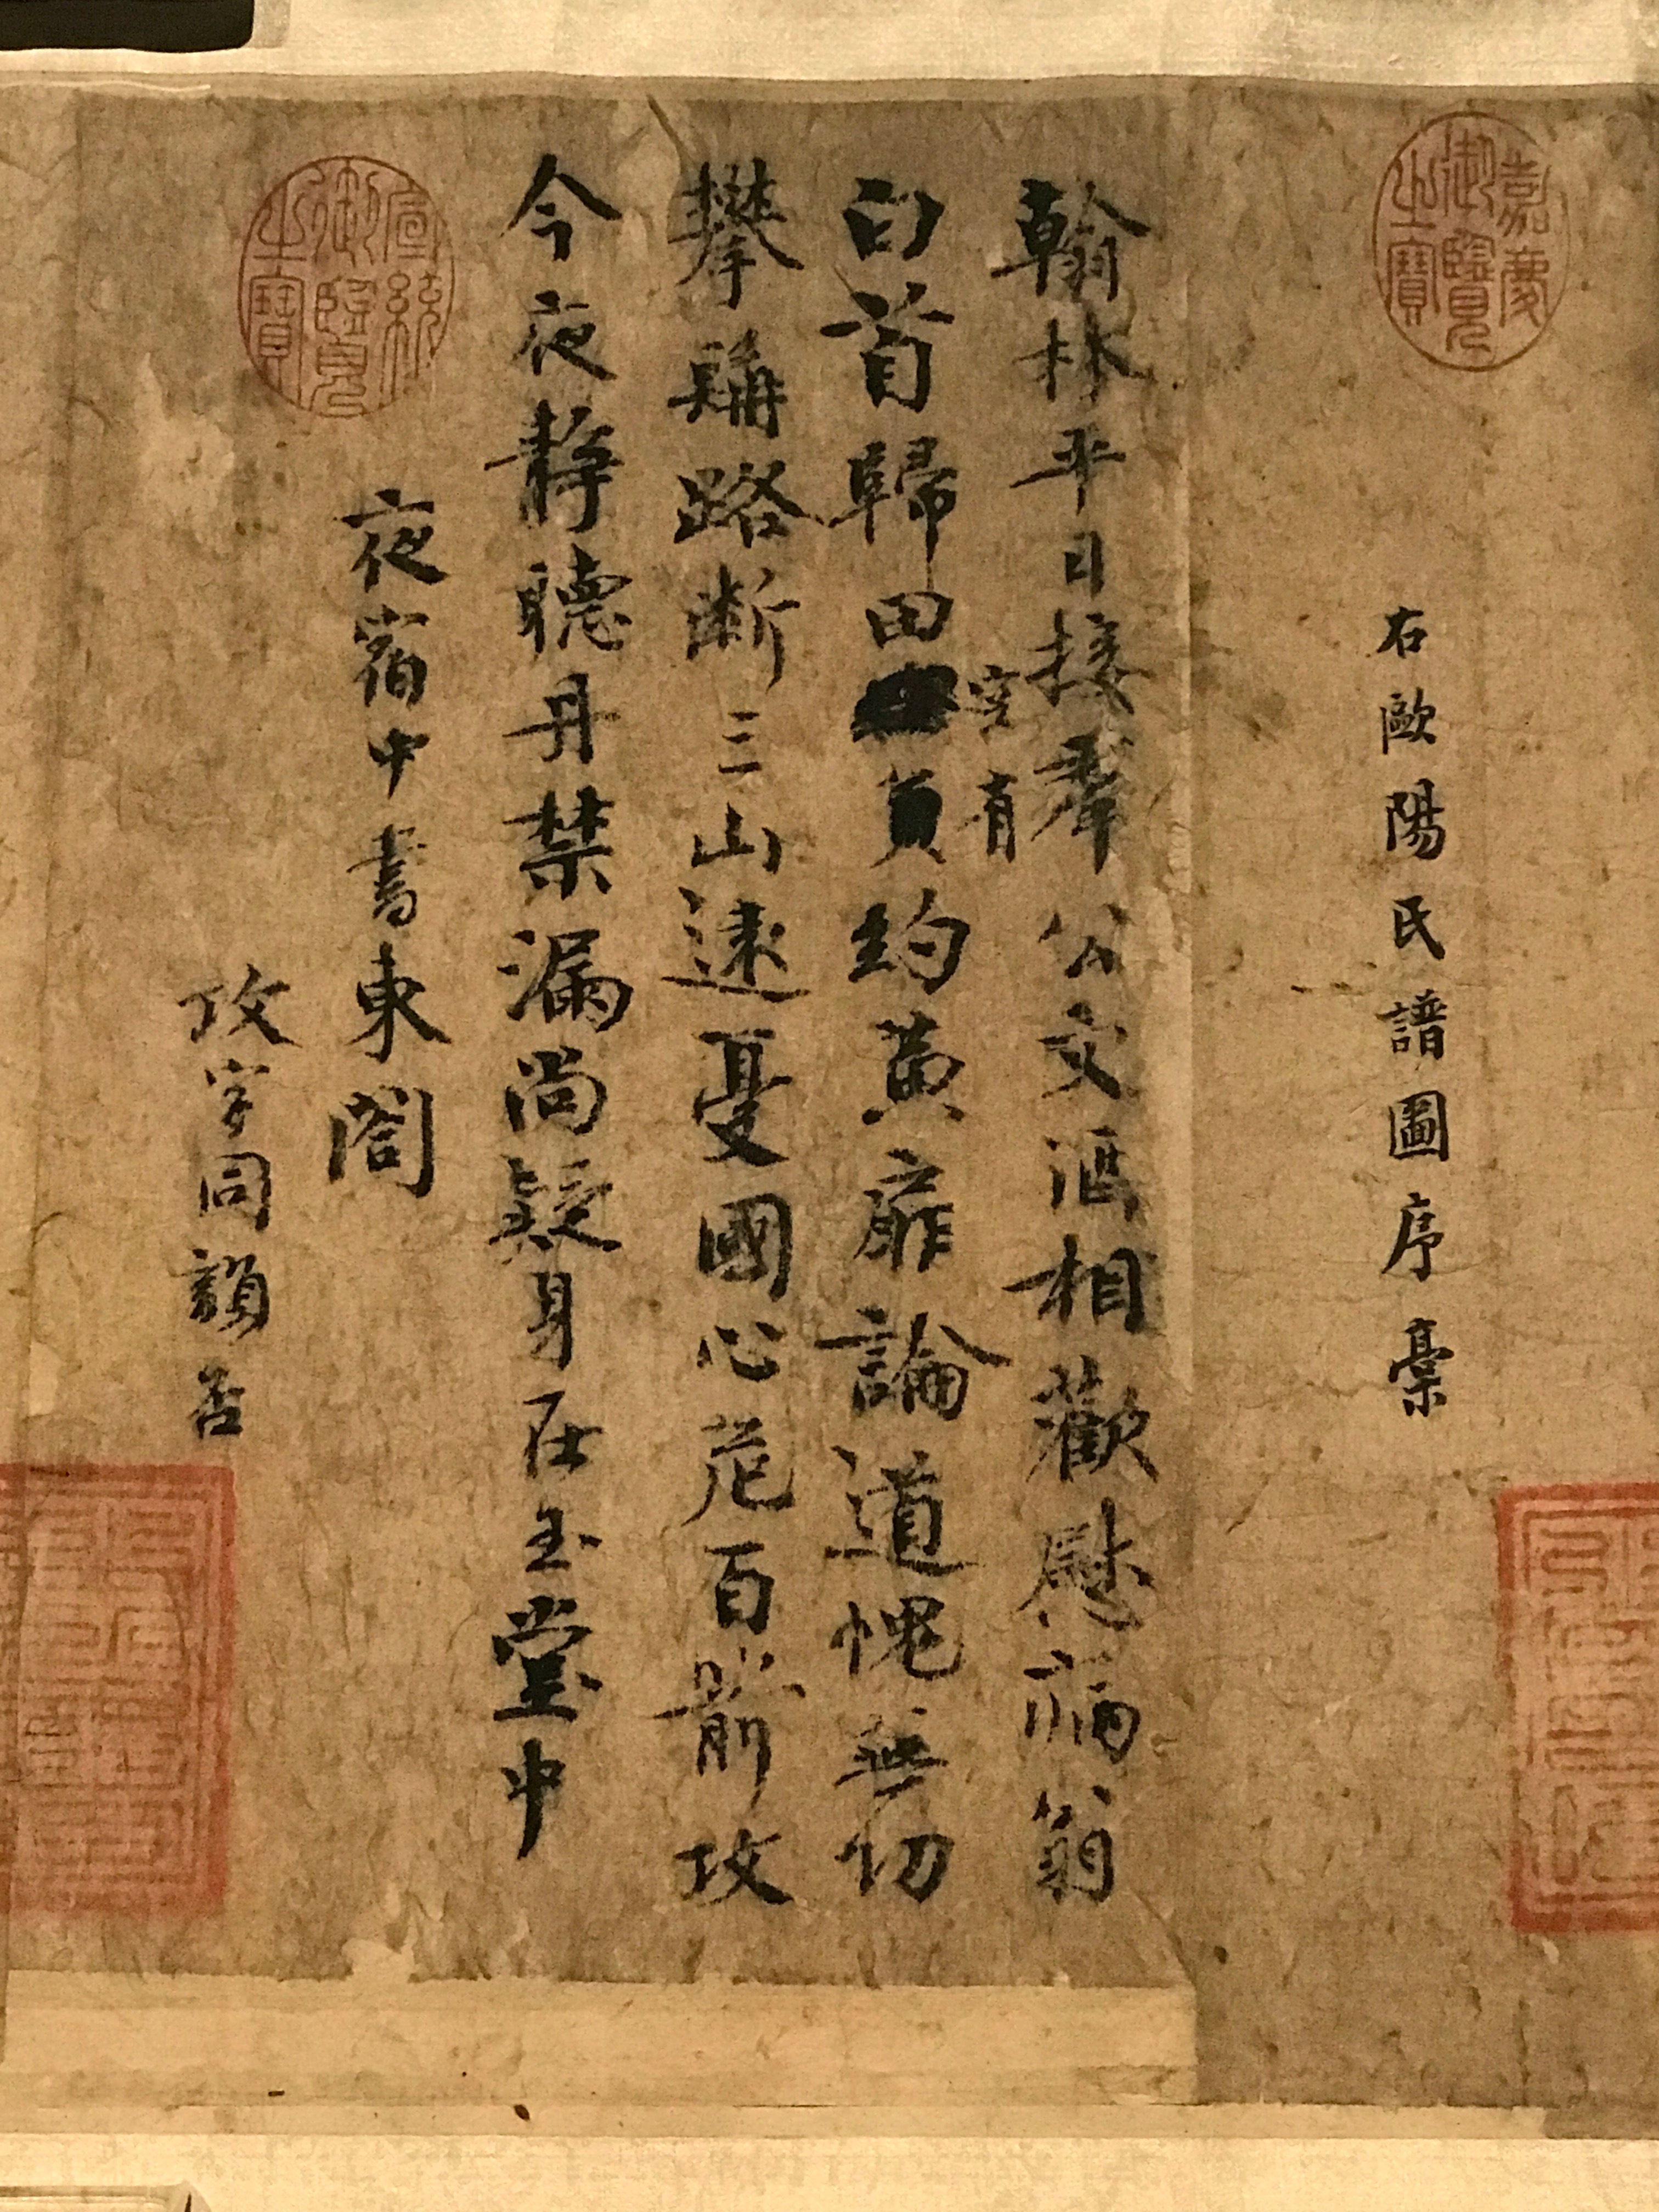 嘉慶御覽之寶
右歐陽氏譜圖序稾
翰林平日接羣公文酒相歡慰病翁
白首歸田空有約黃扉論道愧無功
攀髯路斷三山遠憂國心危百箭攻
今夜靜聽丹禁漏尚疑身在玉堂中
夜宿中書東閤
攻字同韻否
宣統御覽之寶